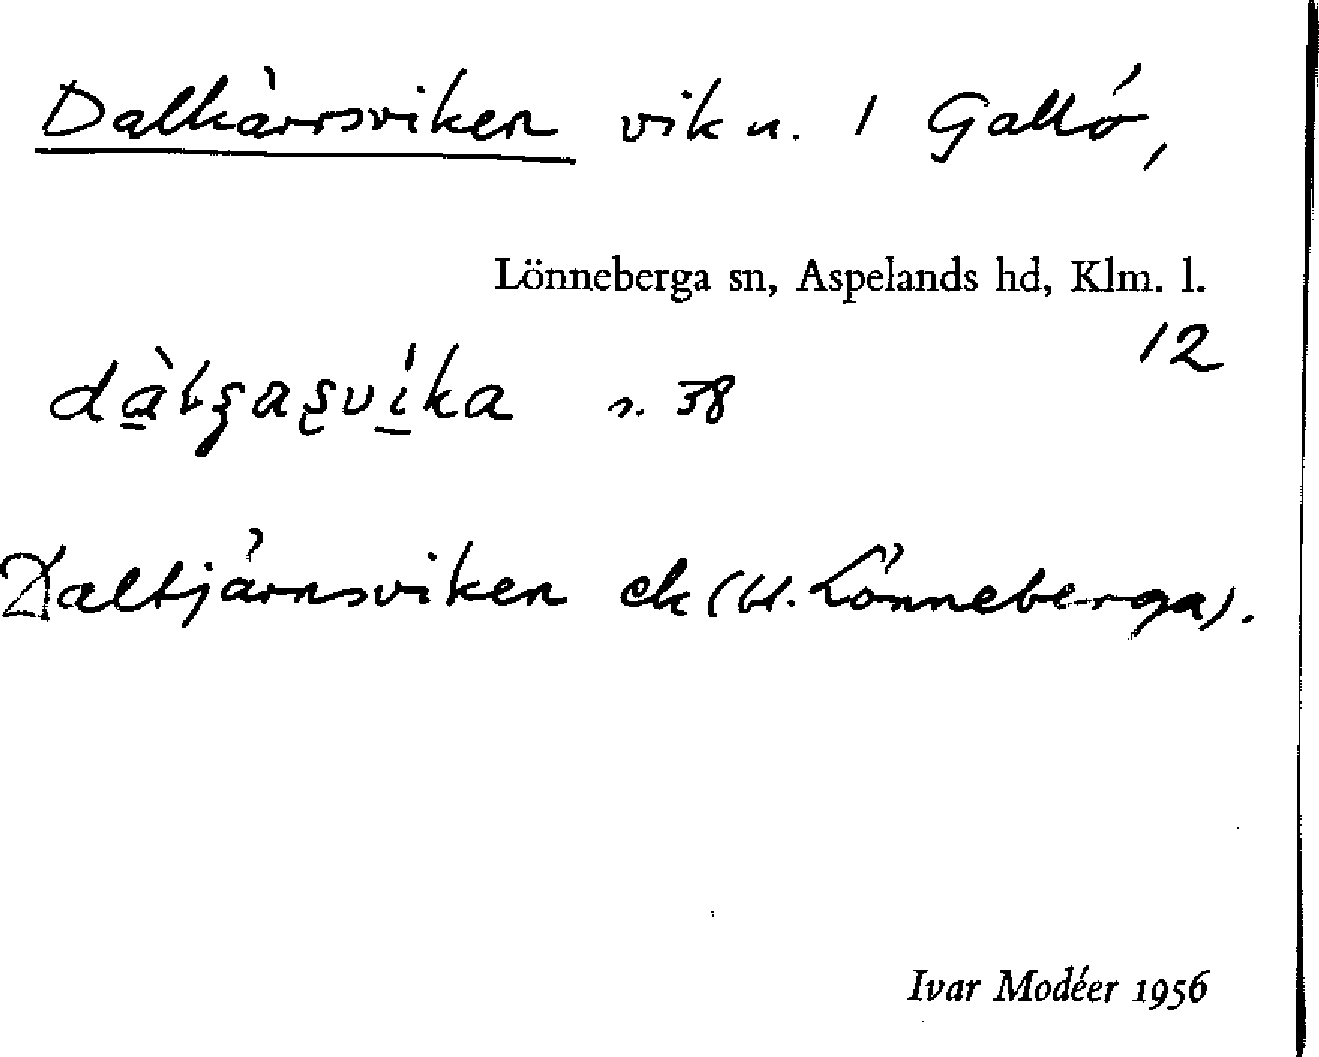 Dalkärrsviken vik u. 1 Gallö,
Lönneberga sn, Aspelands hd, Klm. l.
12
s. 38
Daltjärnsviken ek (bl. Lönneberga).
Ivar Modéer 1956